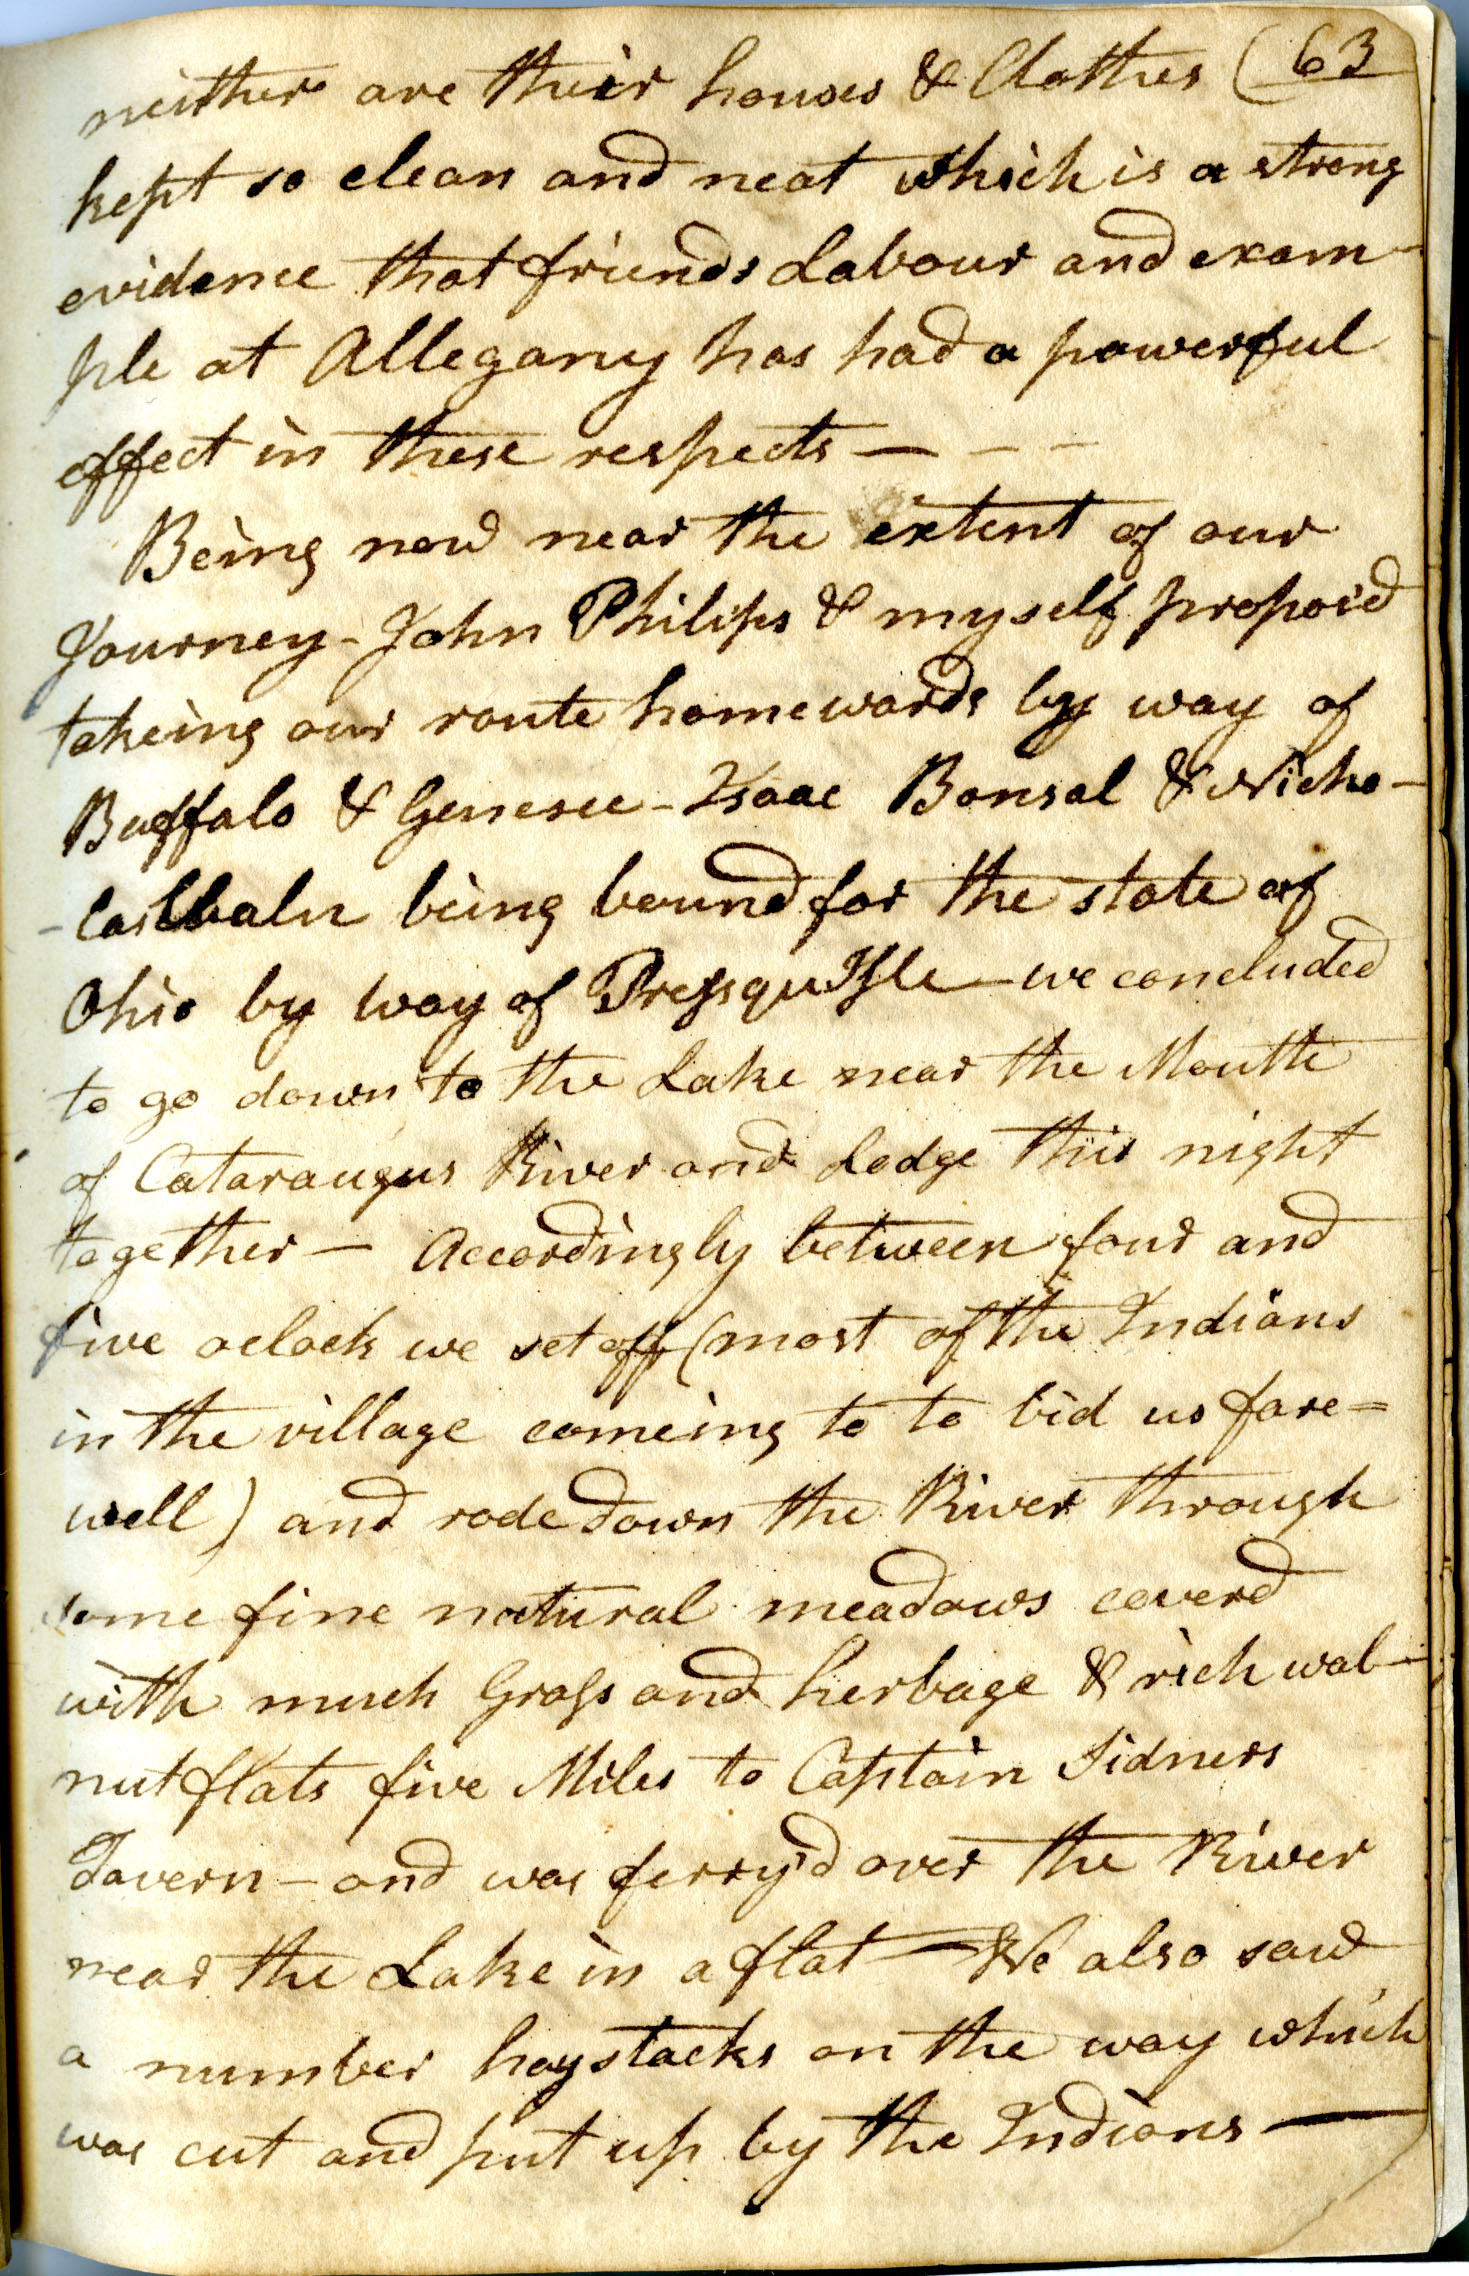 neither are their houses & Clothes (63
kept so clean and neat which is a strong
evidence that friends Labour and exam-
ple at Allegany has had a powerful
effect in these respects — – –
Being now near the extent of our
Journey - John Philips & myself propos'd
takeing our route homewards by way of
Buffalo & Genesee - Isaac Bonsal & Nicho-
being bound for the state of
Ohio by way of Presqu Isle — we concluded
to go down to the Lake near the Mouth
of Cataraugus River and Lodge this night
together — Accordingly between four and
five oclock we set off (most of the Indians
in the village comeing to to bid us fare=
well) and rode down the River through
some fine natural meadows coverd
with much Grass and herbage & rich wal-
nut flats five Miles to Captain Sidners
Tavern - and was ferry'd over the River
near the Lake in a flat — We also saw
a number haystacks on the way which
was cut and put up by the Indians —